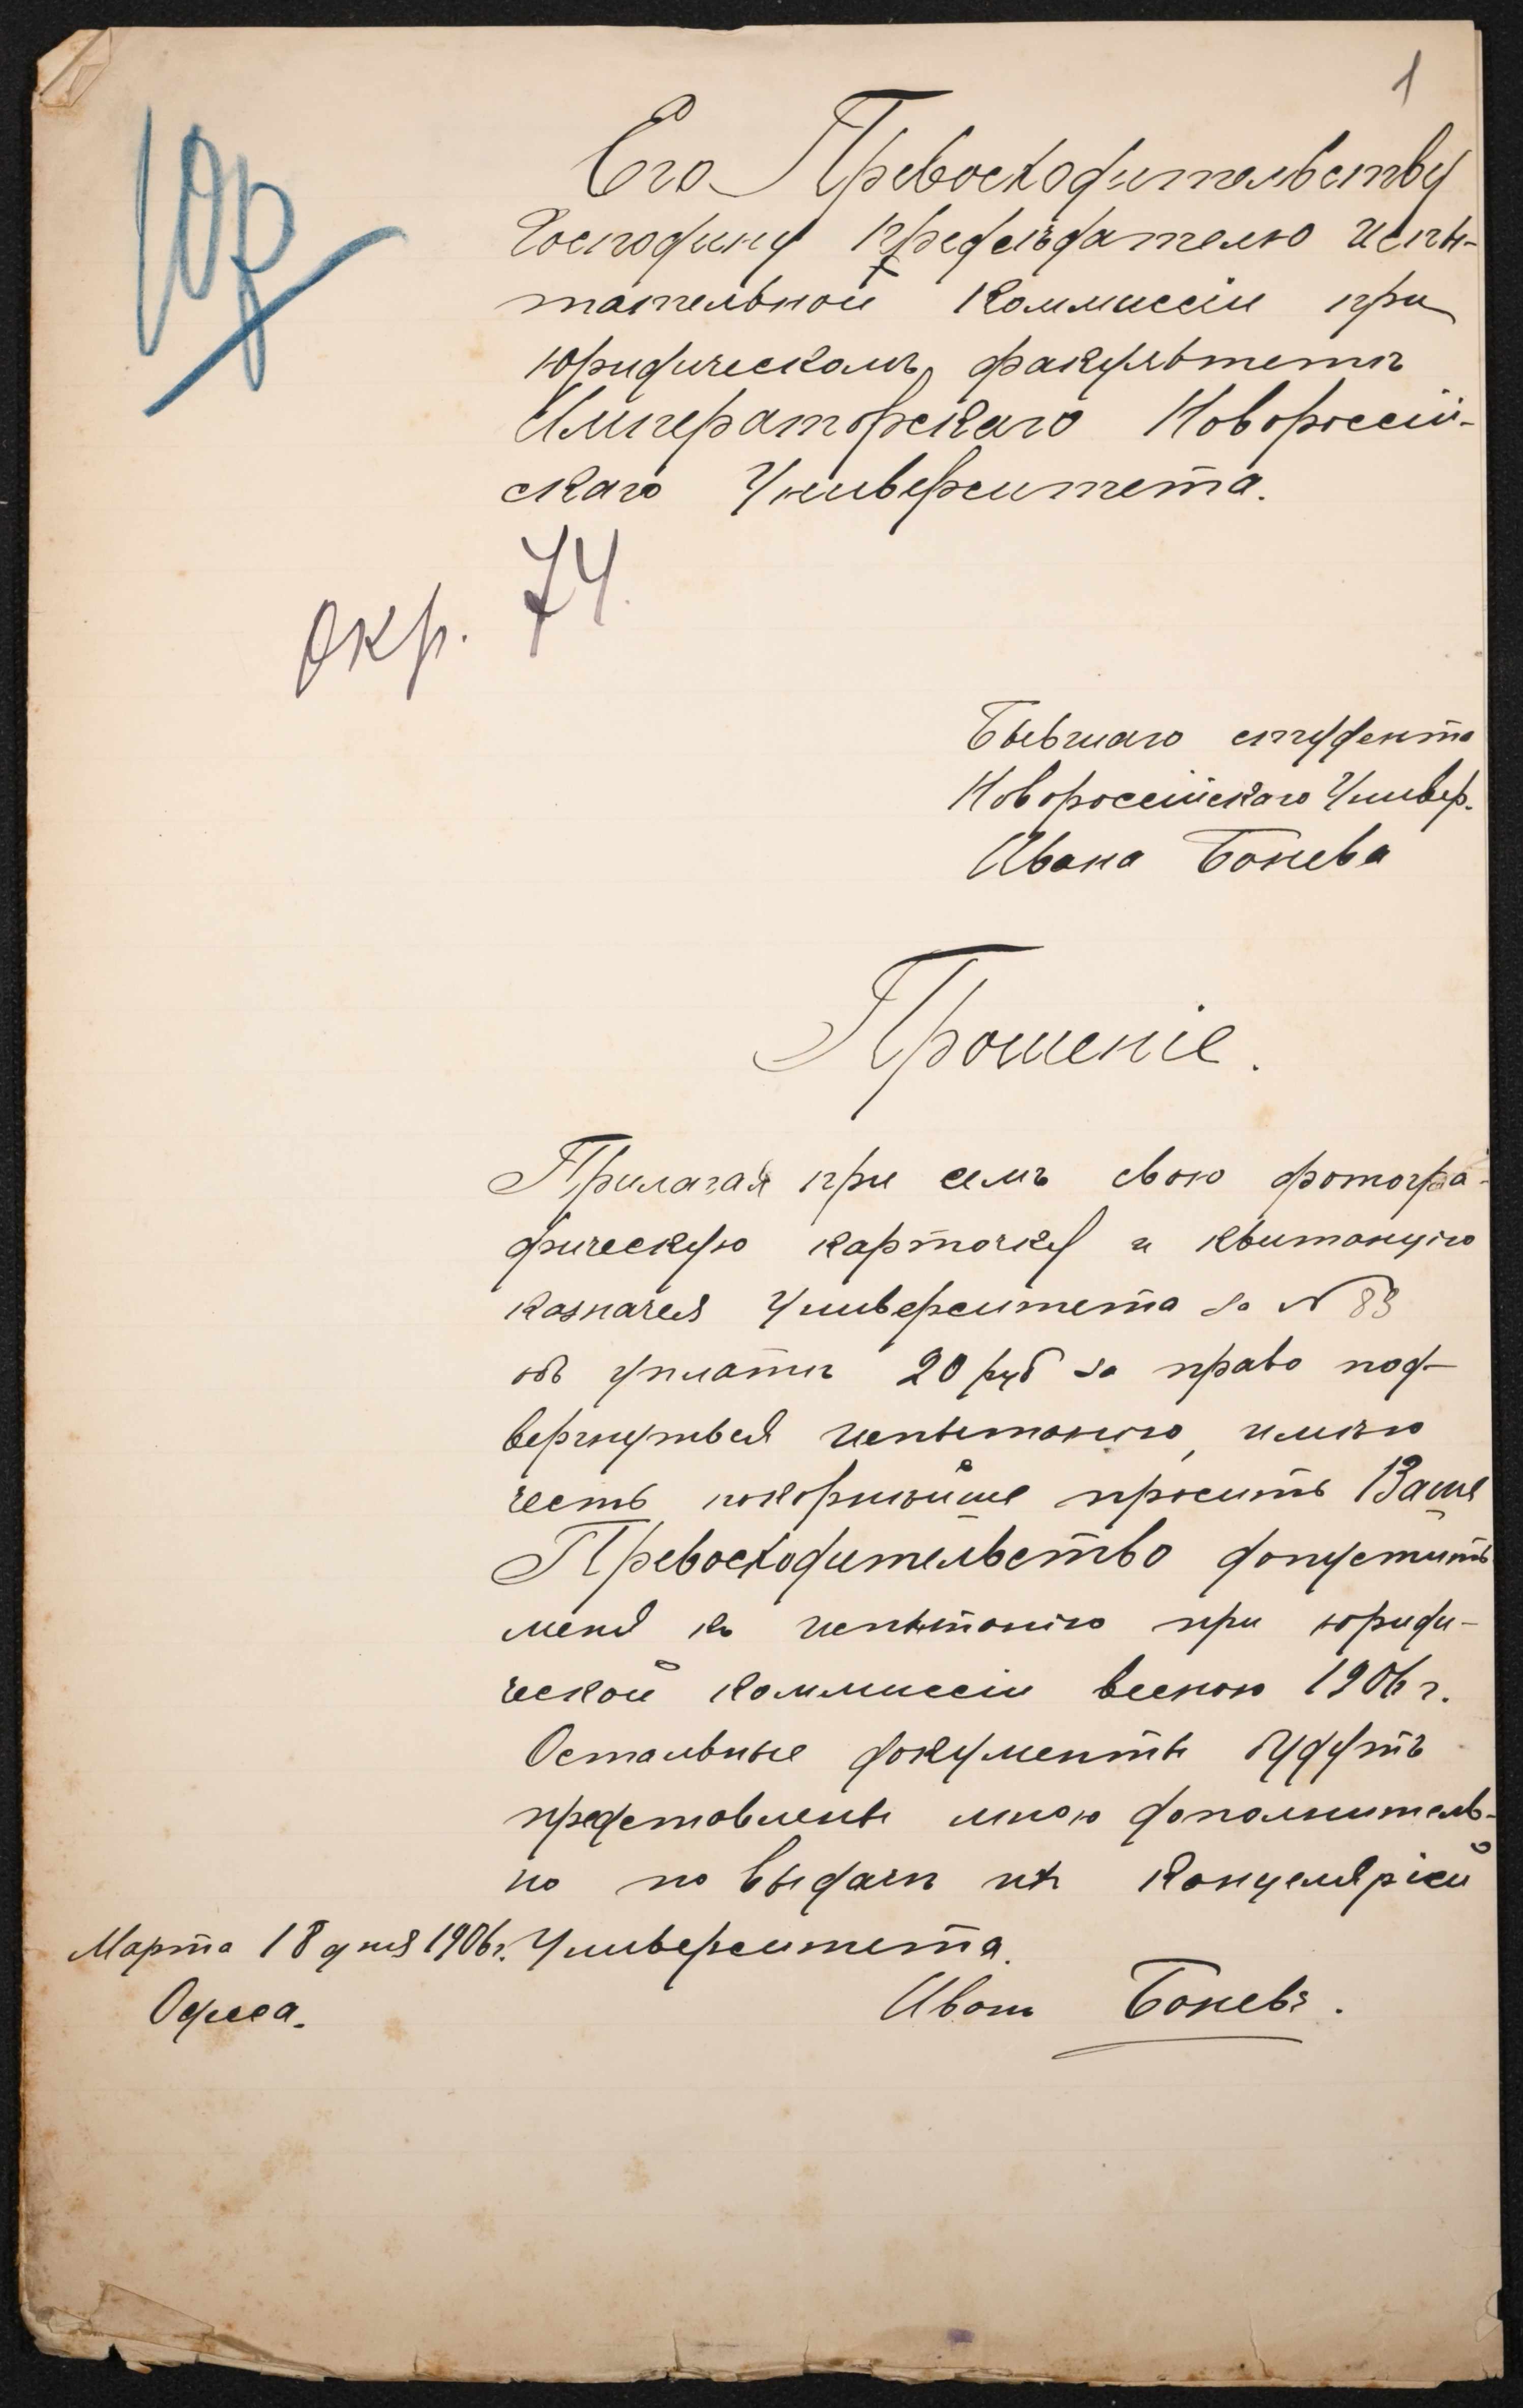 1
Юр
Его Превосходительству
Господину предсѣдателю испы-
тательной Коммиссіи при
юридическомъ факультетѣ
Императорскаго Новороссій-
скаго Университета.
Окр. 74.
Бывшаго студента
Новороссійскаго Универ.
Ивана Бонева
Прошеніе.
Прилагая при семъ свою фотогра-
фическую карточку и квитанцію
казначея Университета за N 83
объ уплатѣ 20 руб за право под-
вергнуться испытанію, имѣю
честь покорнѣйше просить Ваше
Превосходительство допустить
меня къ испытанію при юриди-
ческой коммиссіи весною 1906 г.
Остальные документы будутъ
представлены мною дополнитель-
но по выдачѣ ихъ Канцеляріей
Университета.
Марта 18 дня 1906 г.
Одесса.
Иванъ Боневъ.